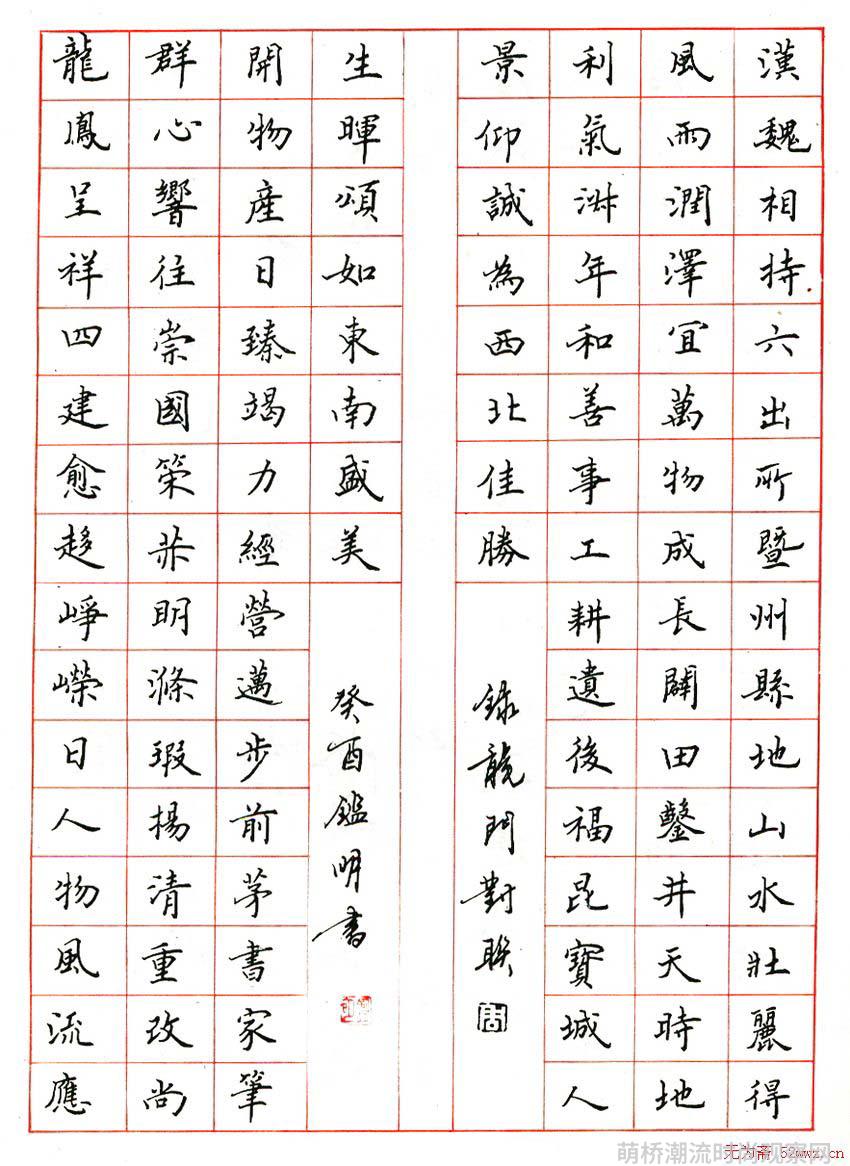 漢魏相持六出所暨州縣地山水壯麗得
風雨潤澤宜萬物成長闢田鑿井天時地
利氣淑年和善事工耕遺後福昆寶城人
景仰誠為西北佳勝
錄龍門對聯
周
龍鳳呈祥四建愈趍崢嶸日人物風流應
群心響往崇國策英明滌瑕揚清重改尚
開物產日臻竭力經營邁步前茅書家筆
生暉頌如東南盛美
癸酉鑑明書
萌桥潮流时尚观察网
无为斋 52wwz.cn